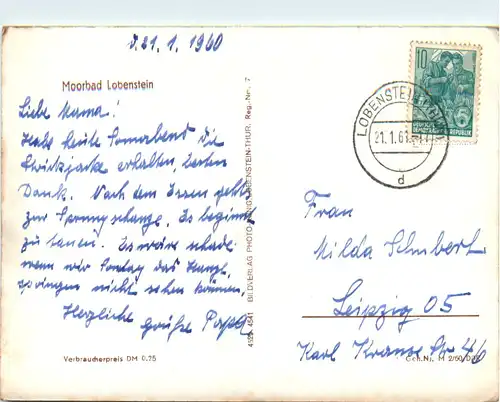 d. 21. 1. 1960
Moorbad Lobenstein
Liebe Mama!
Habe heute Sonnabend die
Strickjacke erhalten, besten
Dank. Nach dem Essen geht
zur Sprungschanze. Es beginnt
zu tauen. Es wäre schade
wenn wir Sontag das
springen nicht sehen können.
Herzliche
Grüße Papa
Verbraucherpreis DM 0,25
BILDVERLAG PHOTO-KÖNIG LOBENSTEIN-THÜR. Reg.-Nr.: 7
10
LOBENSTEIN
21.1.61
d
Frau
Hilda Schubert
Leipzig O5
Karl Krause Str 46
Gen.Nr. M 2/60/DDR